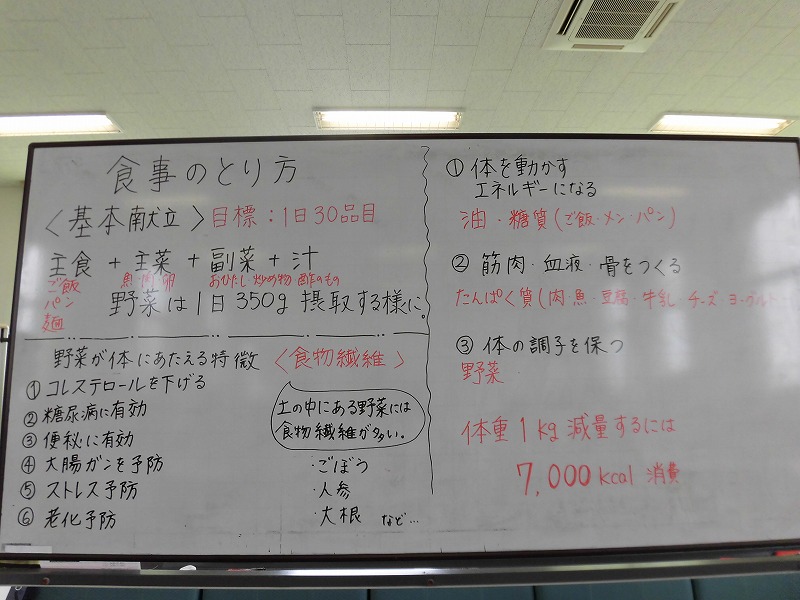 食事のとり方
〈基本献立〉目標：1日30品目
主食 + 主菜 + 副菜 + 汁
ご飯 魚 肉 卵 おひたし・炒め物 酢のもの
パン
麺
野菜は1日350g 摂取する様に。
野菜が体にあたえる特徴 〈食物繊維〉
① コレステロールを下げる
② 糖尿病に有効
③ 便秘に有効
④ 大腸ガンを予防
⑤ ストレス予防
⑥ 老化予防
土の中にある野菜には
食物繊維が多い。
・ごぼう
・人参
・大根 など…
① 体を動かす
エネルギーになる
油・糖質(ご飯・メン・パン)
② 筋肉・血液・骨をつくる
たんぱく質(肉・魚・豆腐・牛乳 チーズ・ヨーグルト
③ 体の調子を保つ
野菜
体重1kg減量するには
7,000kcal 消費